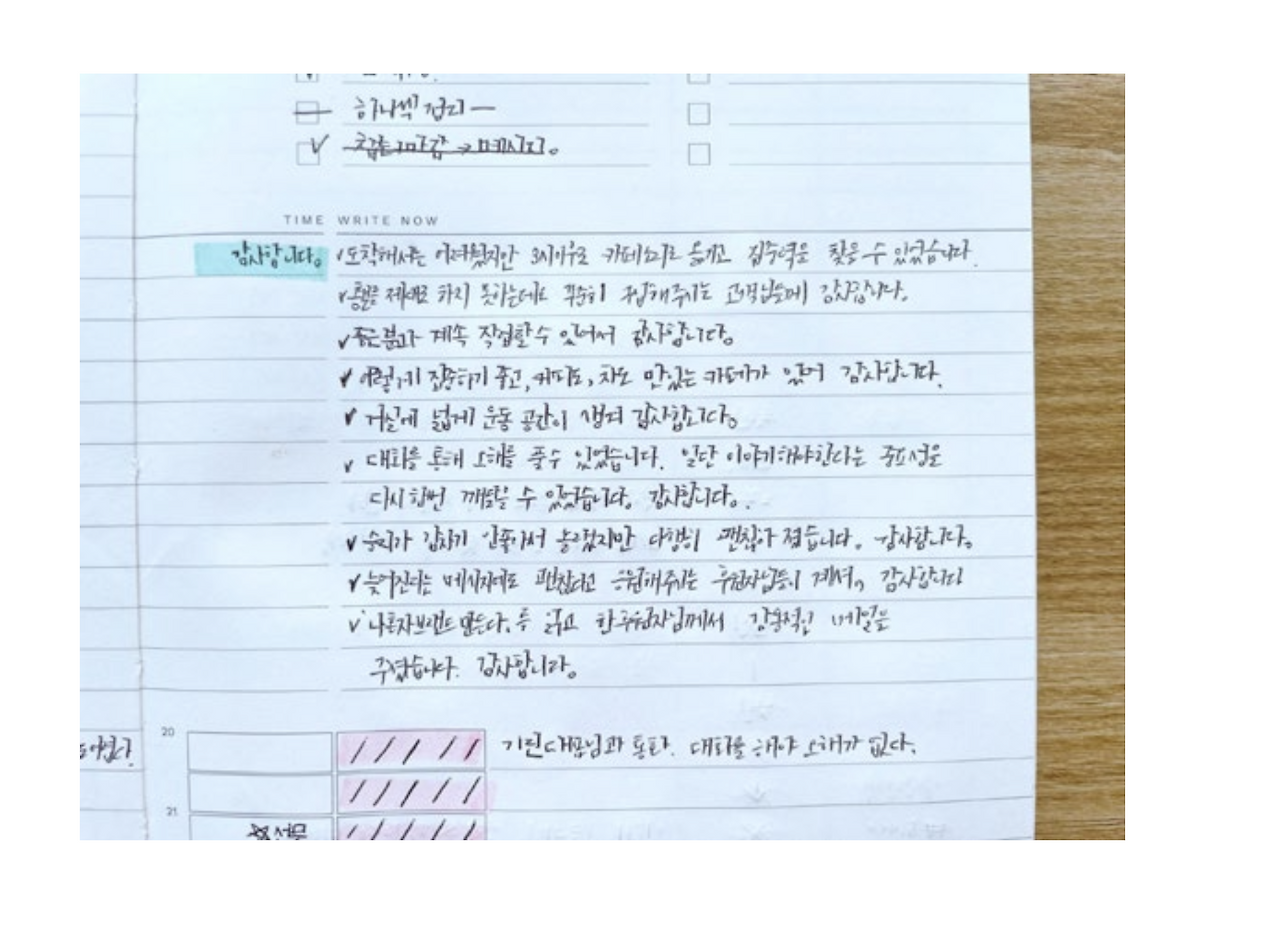 하나씩 정리
TIME WRITE NOW
감사합니다. 도착해서는 어려웠지만 3시이후로 카페소리로 즐기고 집중력을 찾을 수 있었습니다.
제대로 하지 못하는데도 꾸준히 구입해주시는 고객님들께 감사합니다.
좋은분과 계속 작업할 수 있어서 감사합니다.
이렇게 집중하기 좋고, 커피도, 차도 맛있는 카페가 있어 감사합니다.
거실에 넓게 운동 공간이 생겨 감사합니다.
대화를 통해 오해를 풀 수 있었습니다. 일단 이야기해야한다는 중요성을
다시 한번 깨달을 수 있었습니다. 감사합니다.
가 갑자기 안좋아서 놀랬지만 다행히 괜찮아 졌습니다. 감사합니다.
늦어진다는 메시지에도 괜찮다고 응원해주시는 후원자님들이 계셔, 감사합니다
'나혼자브랜드만든다.'를 읽고 한 후원자님께서 감동적인 메일을
주셨습니다. 감사합니다.
20
대표님과 통화. 대화를 해야 오해가 없다.
21